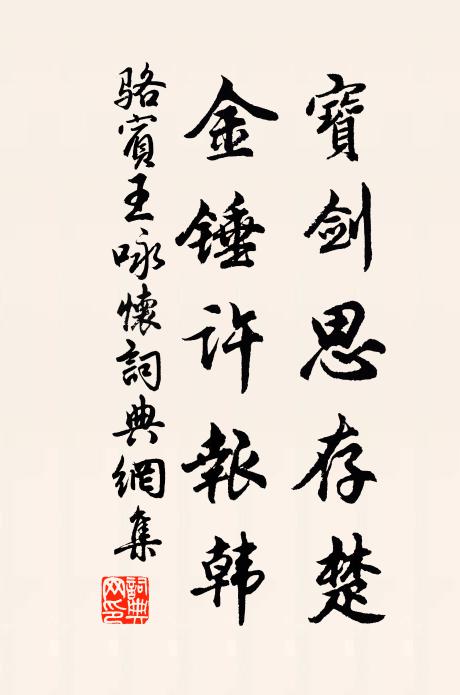 寶劍思存楚
金錘許報韓
駱賓王咏懷詞典網集
詞典網印